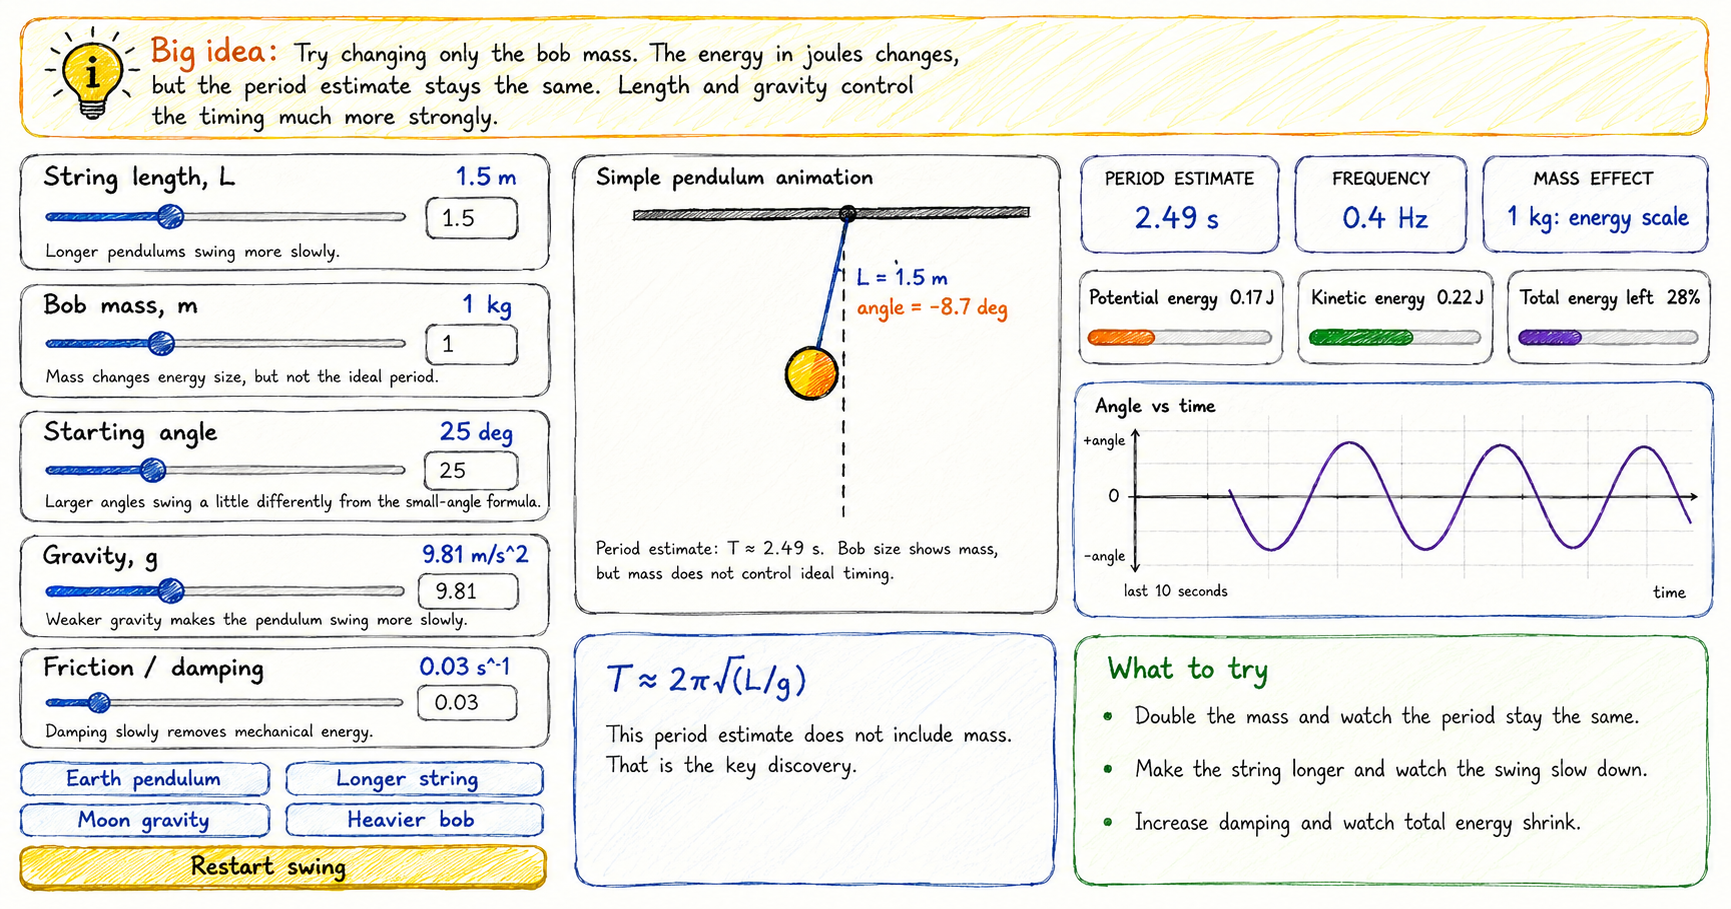 Big idea: Try changing only the bob mass. The energy in joules changes,
but the period estimate stays the same. Length and gravity control
the timing much more strongly.
String length, L 1.5 m
1.5
Longer pendulums swing more slowly.
Bob mass, m 1 kg
1
Mass changes energy size, but not the ideal period.
Starting angle 25 deg
25
Larger angles swing a little differently from the small-angle formula.
Gravity, g 9.81 m/s^2
9.81
Weaker gravity makes the pendulum swing more slowly.
Friction / damping 0.03 s^-1
0.03
Damping slowly removes mechanical energy.
Earth pendulum
Longer string
Moon gravity
Heavier bob
Restart swing
Simple pendulum animation
L = 1.5 m
angle = -8.7 deg
Period estimate: T ≈ 2.49 s. Bob size shows mass,
but mass does not control ideal timing.
T ≈ 2π√(L/g)
This period estimate does not include mass.
That is the key discovery.
PERIOD ESTIMATE
2.49 s
FREQUENCY
0.4 Hz
MASS EFFECT
1 kg: energy scale
Potential energy 0.17 J
Kinetic energy 0.22 J
Total energy left 28%
Angle vs time
+angle
0
-angle
last 10 seconds
time
What to try
• Double the mass and watch the period stay the same.
• Make the string longer and watch the swing slow down.
• Increase damping and watch total energy shrink.